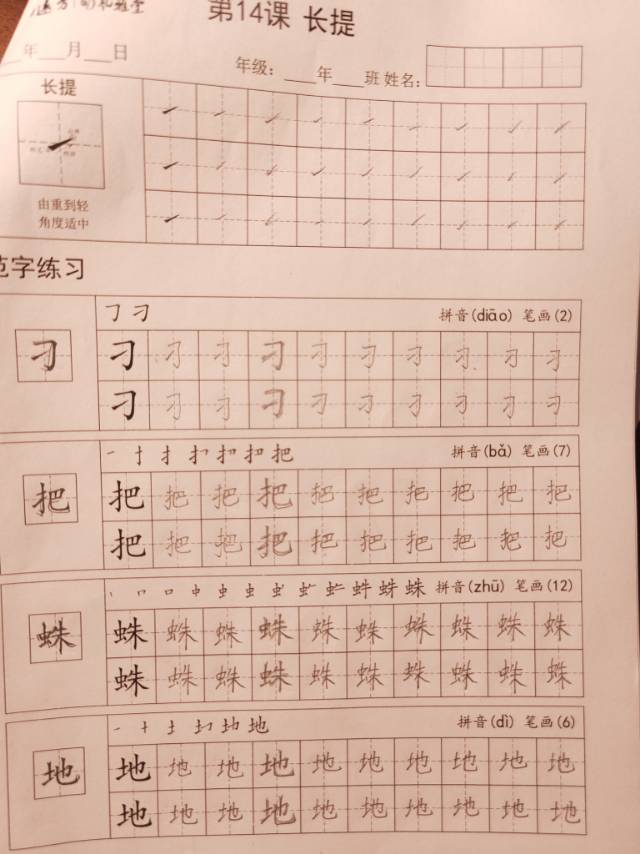 第14课 长提
年 月 日
年级: 年 班 姓名:
长提
由重到轻
角度适中
范字练习
刁 拼音(diāo) 笔画(2)
刁 刁 刁 刁 刁 刁 刁 刁 刁 刁 刁
刁 刁 刁 刁 刁 刁 刁 刁 刁 刁
把 拼音(bǎ) 笔画(7)
把 把 把 把 把 把 把 把 把 把 把
把 把 把 把 把 把 把 把 把 把
蛛 拼音(zhū) 笔画(12)
蛛 蛛 蛛 蛛 蛛 蛛 蛛 蛛 蛛 蛛 蛛
蛛 蛛 蛛 蛛 蛛 蛛 蛛 蛛 蛛 蛛
地 拼音(dì) 笔画(6)
地 地 地 地 地 地 地 地 地 地 地
地 地 地 地 地 地 地 地 地 地